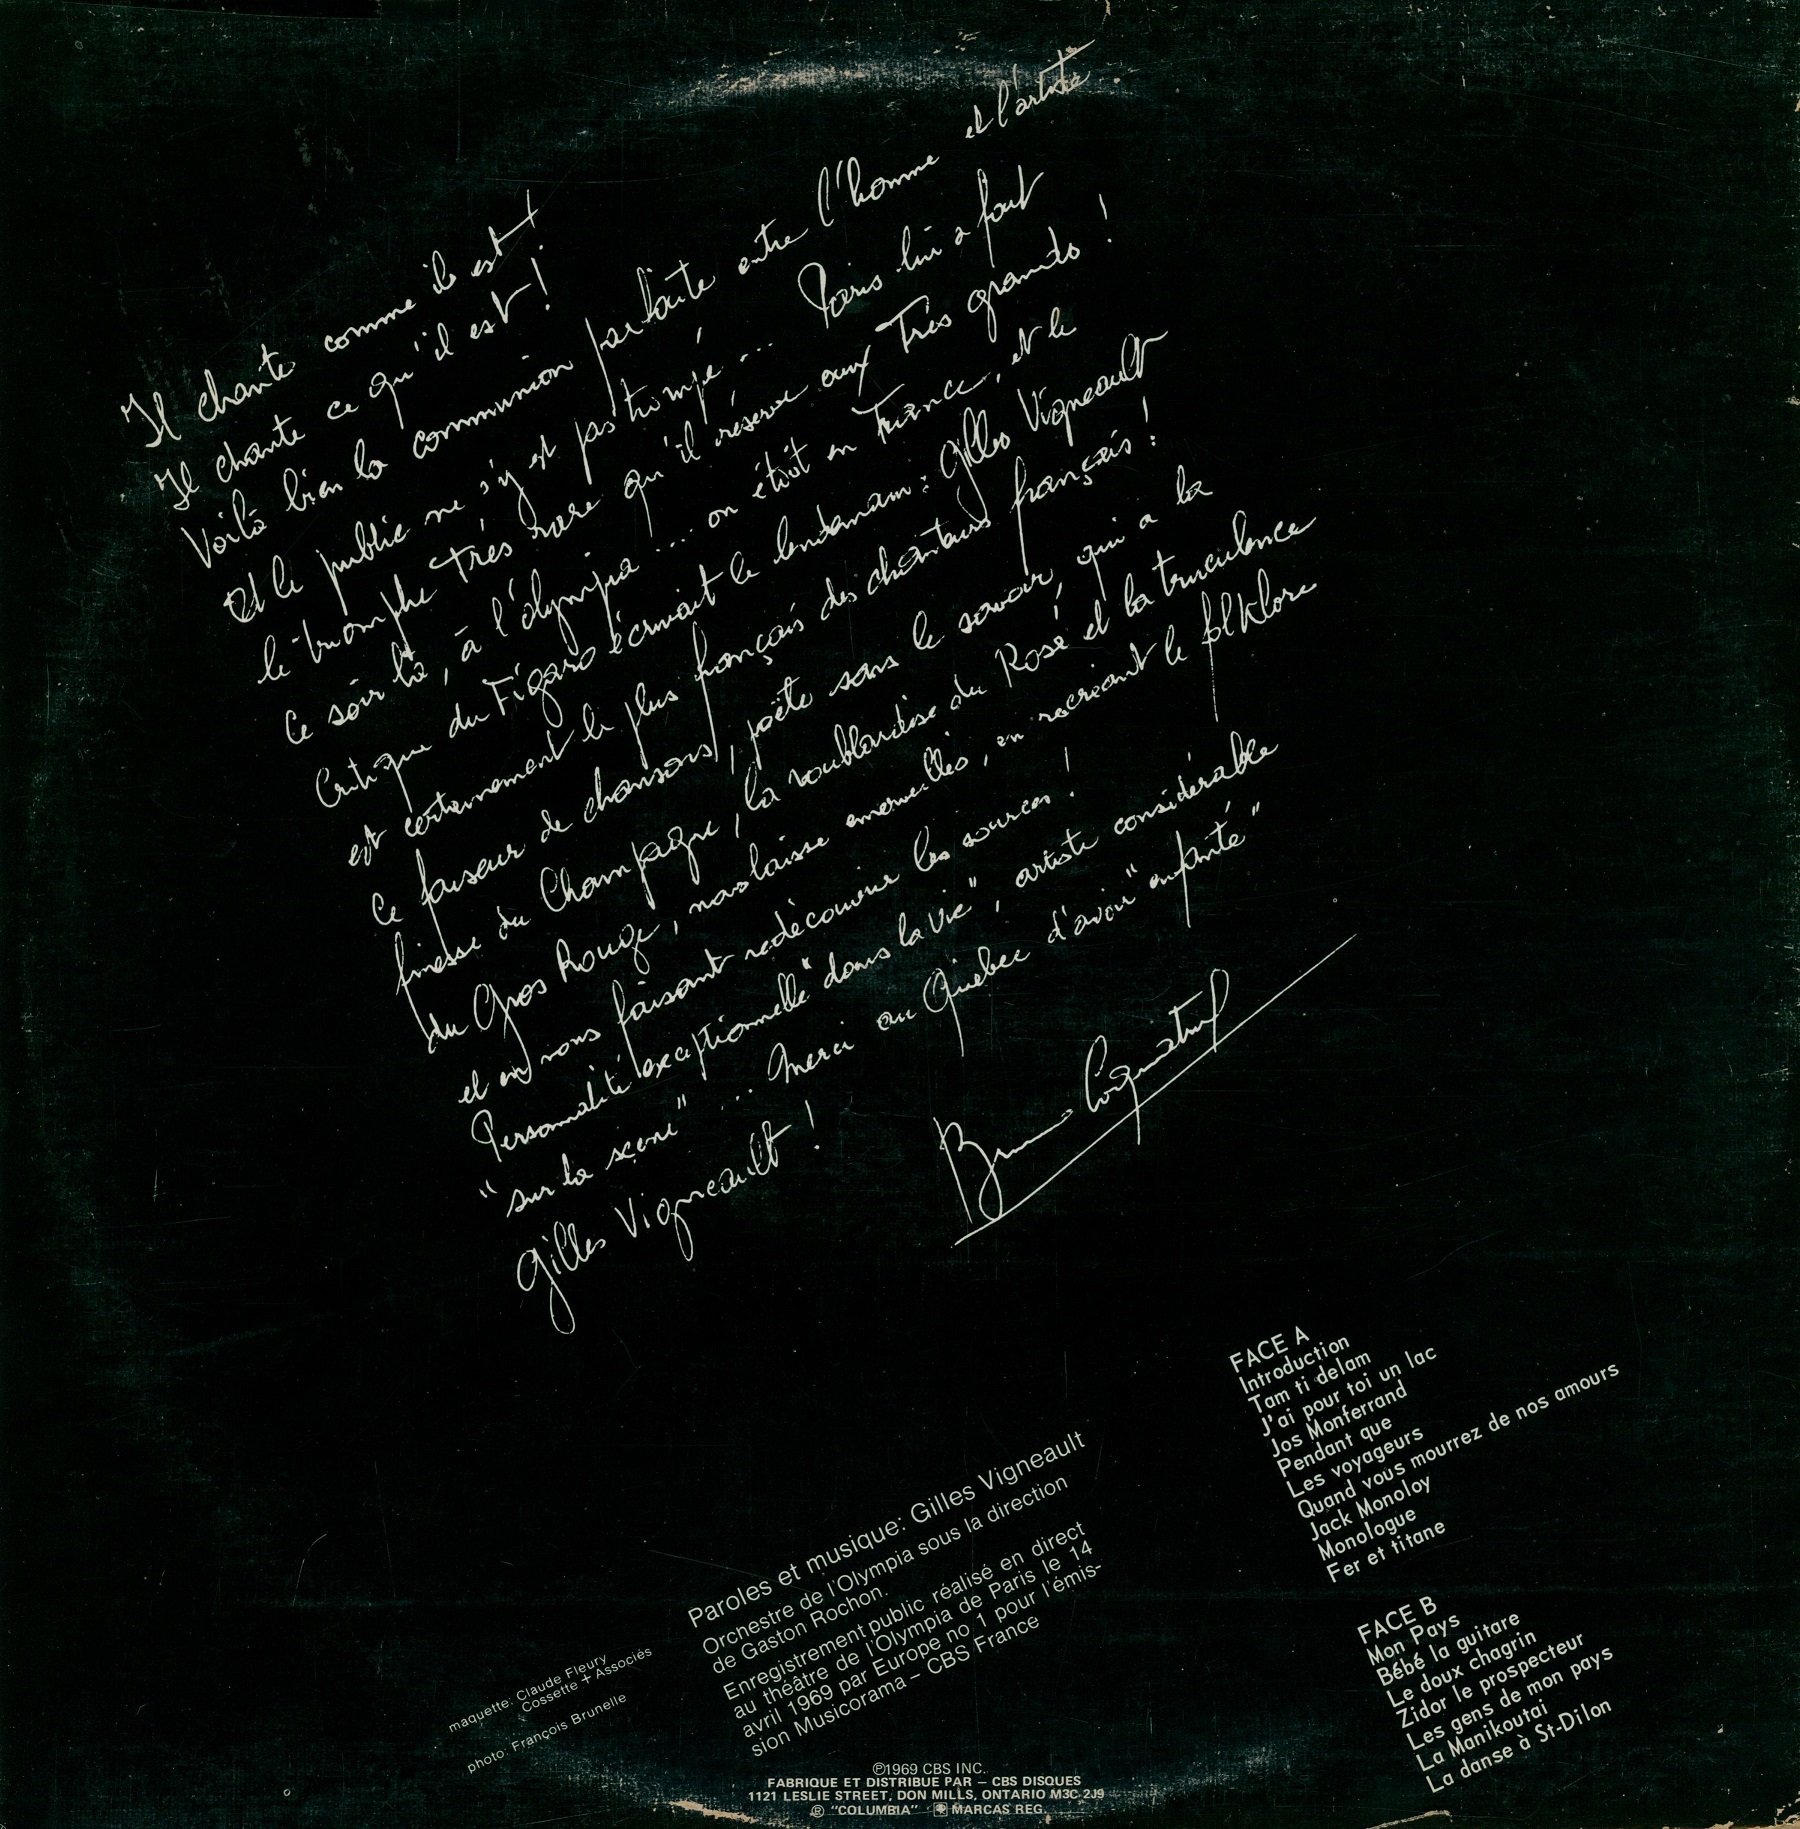 Il chante comme il est !
Il chante ce qu'il est !
Voilà bien la communion parfaite entre l'homme et l'artiste
Et le public ne s'y est pas trompé... Paris lui a fait
le triomphe très rare qu'il réserve aux Très grands !
Ce soir là, à l'Olympia... on était en France, et le
Critique du Figaro écrivait le lendemain : Gilles Vigneault
est certainement le plus français des chanteurs français !
Ce faiseur de chansons, poëte sans le savoir, qui a la
finesse du Champagne, la roublardise du Rosé et la truculence
du Gros Rouge, nous laisse émerveillés, en recréant le folklore
et en nous faisant redécouvrir les sources !
Personnalité exceptionnelle "dans la vie", artiste considérable
"sur la scène"... Merci au Québec d'avoir "enfanté"
Gilles Vigneault !
Bruno Coquatrix
FACE A
Introduction
Tam ti delam
J'ai pour toi un lac
Jos Monferrand
Pendant que
Les voyageurs
Quand vous mourrez de nos amours
Jack Monoloy
Monologue
Fer et titane
FACE B
Mon Pays
Bébé la guitare
Le doux chagrin
Zidor le prospecteur
Les gens de mon pays
La Manikoutai
La danse à St-Dilon
Paroles et musique: Gilles Vigneault
Orchestre de l'Olympia sous la direction
de Gaston Rochon.
Enregistrement public réalisé en direct
au théâtre de l'Olympia de Paris le 14
avril 1969 par Europe no 1 pour l'émis-
sion Musicorama – CBS France
maquette: Claude Fleury
Cossette + Associés
photo: François Brunelle
℗1969 CBS INC.
FABRIQUE ET DISTRIBUE PAR – CBS DISQUES
1121 LESLIE STREET, DON MILLS, ONTARIO M3C 2J9
® "COLUMBIA" MARCAS REG.